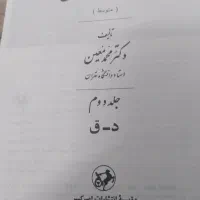 (متوسط)
تألیف
دکتر محمد معین
استاد دانشگاه تهران
جلد دوم
د-ق